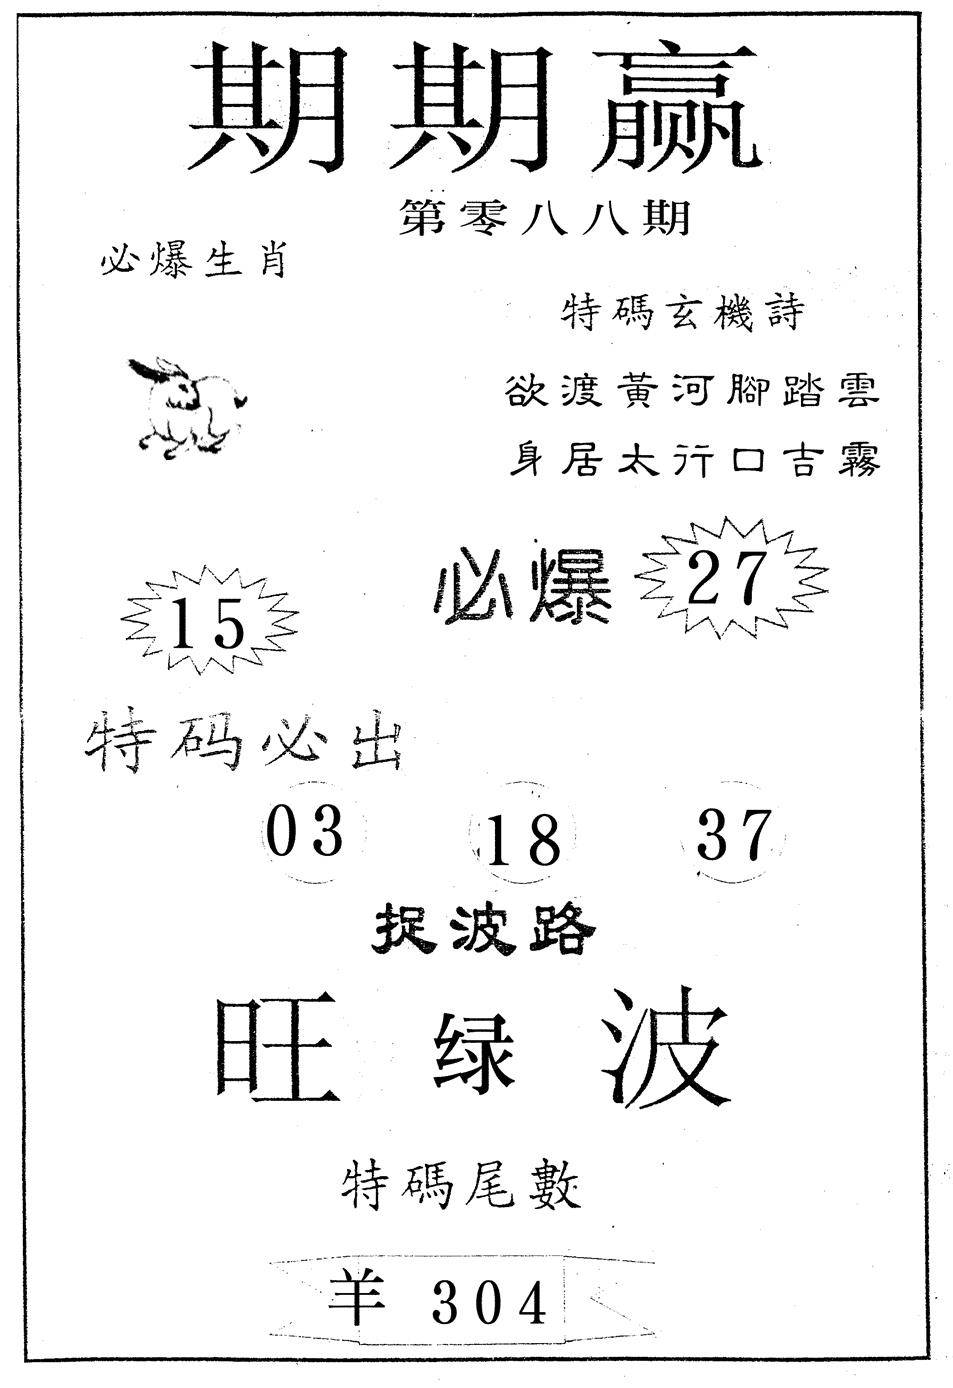 期期赢
第零八八期
必爆生肖
特碼玄機詩
欲渡黃河腳踏雲
身居太行口吉霧
必爆 27
15
特码必出
03 18 37
捉波路
旺绿波
特碼尾數
羊 304